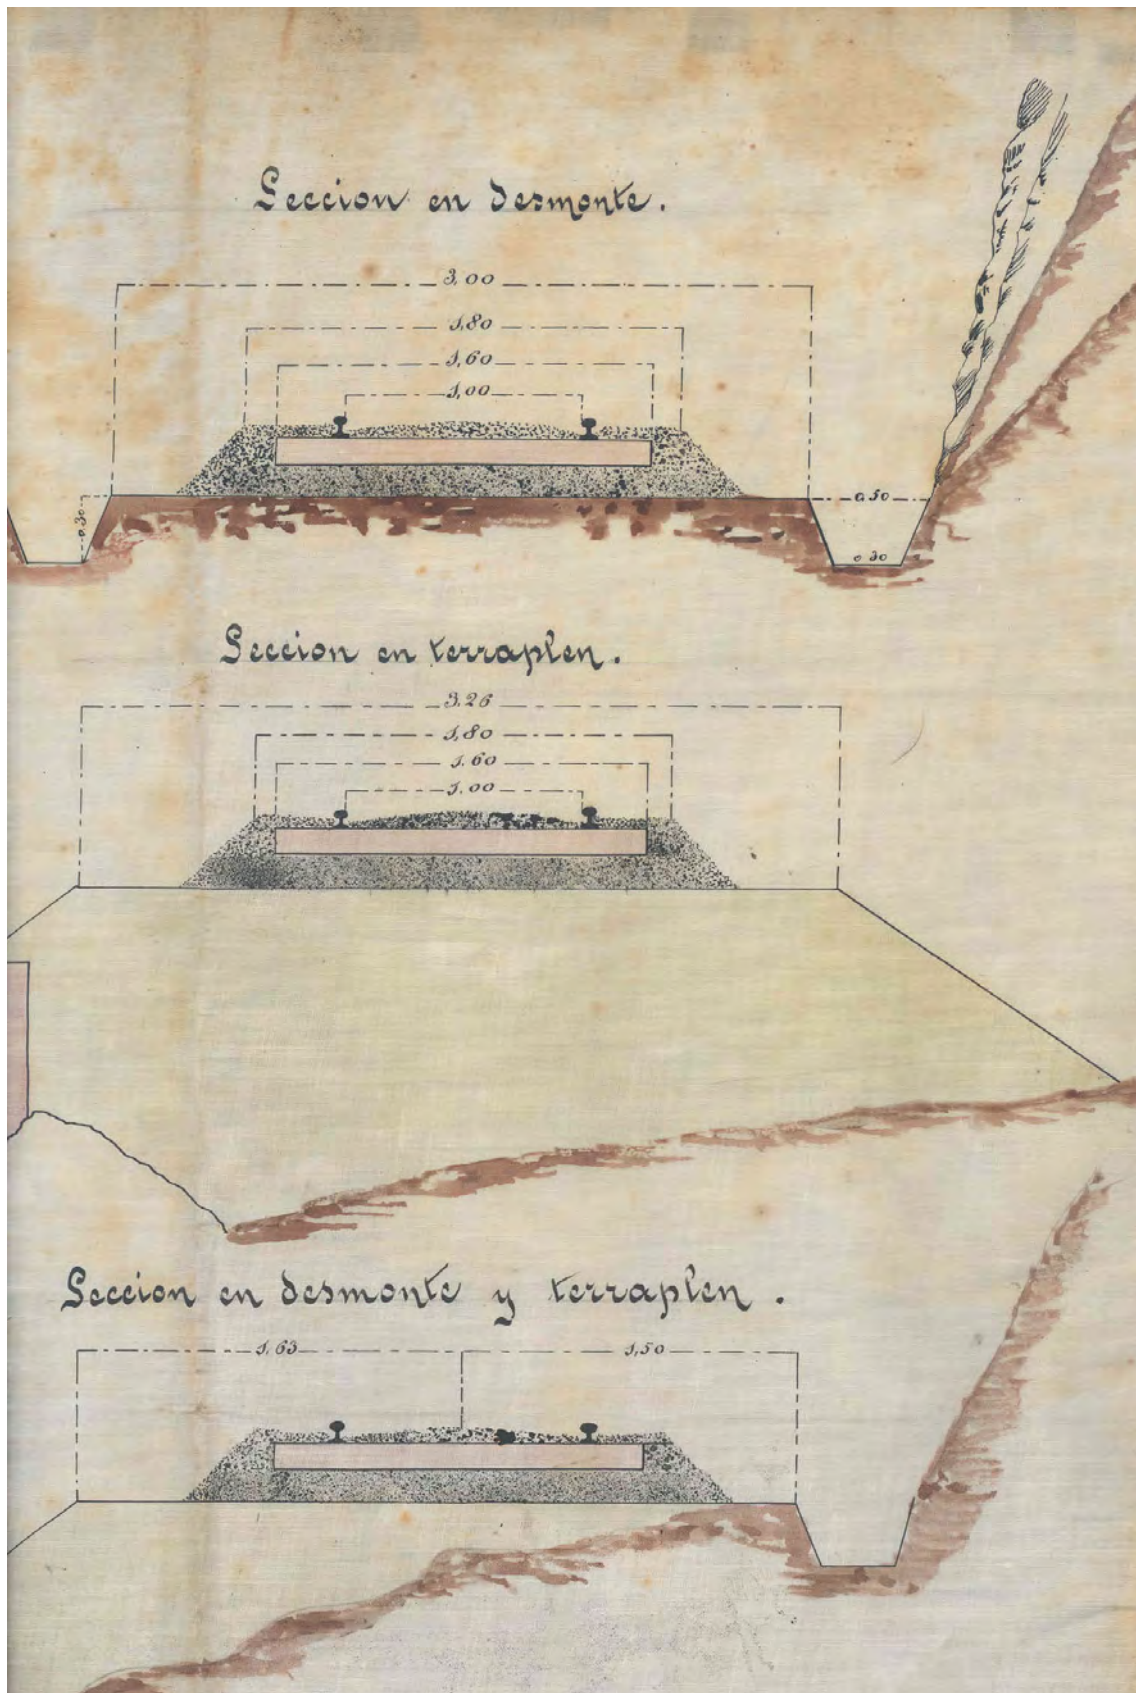 Seccion en desmonte.
3,00
1,80
1,60
1,00
0.30
0.50
0.30
Seccion en terraplen.
3.26
1,80
1.60
1.00
Seccion en desmonte y terraplen.
1.63
1,50